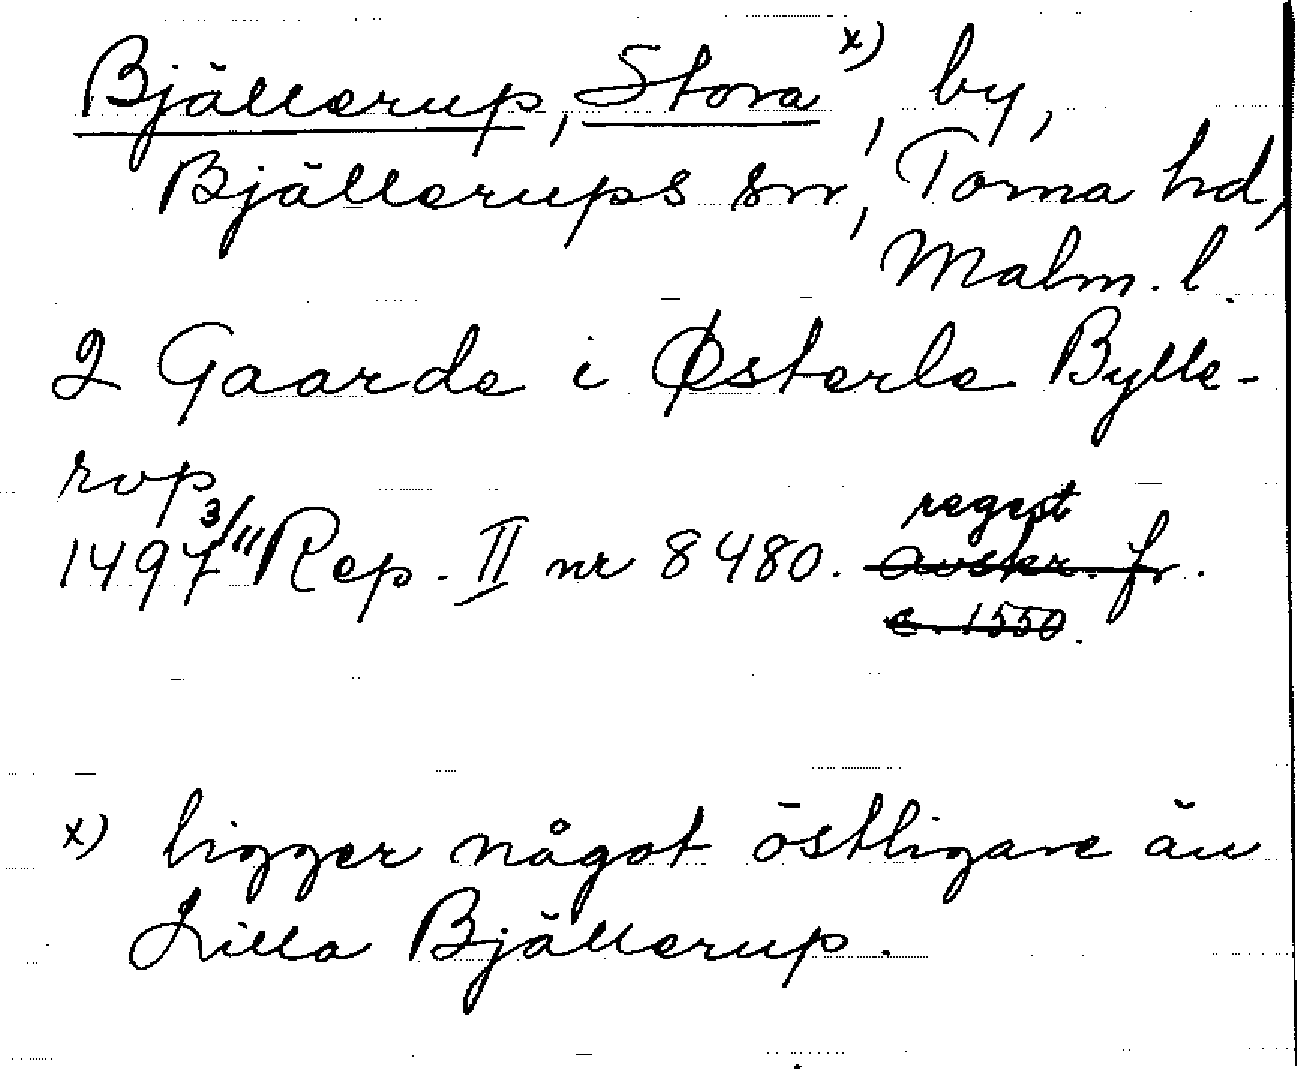 Bjällerup, Stora x), by,
Bjällerups sn, Torna hd,
Malm. l.
2 Gaarde i Østerle Bylle-
rvp
1497 3/11 Rep. II nr 8480. regest avskr. fr.
c. 1550.
x) ligger något östligare än
Lilla Bjällerup.